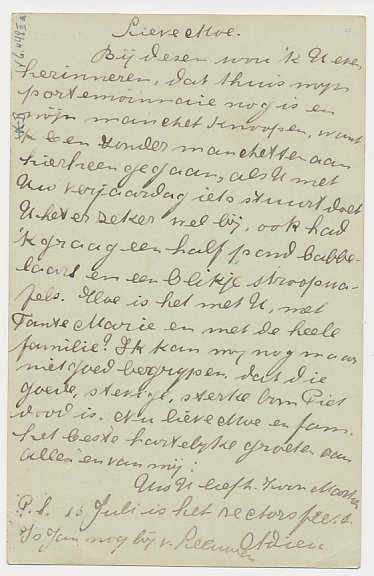 Lieve Moe.
Bij dezen wou 'k U even
herinneren, dat thuis mijn
portemoinnaie nog is en
mijn manchet knoopen, want
'k ben zonder manchetten aan
hierheen gegaan, als U met
Uw verjaardag iets stuurt doet
U het er zeker wel bij, ook had
'k graag een half pond babbe-
laars en een blikje stroopwa-
fels. Hoe is het met U, met
Tante Marie en met de heele
familie? Ik kan mij nog maar
niet goed begrijpen, dat die
goede, stevige, sterke Oom Piet
dood is. Nu lieve Moe en fam.
het beste hartelijke groeten aan
allen en van mij:
Uws U liefh. Zoon
P.S. 16 Juli is het rectorsfeest.
Is Jan nog bij v. Leeuwen